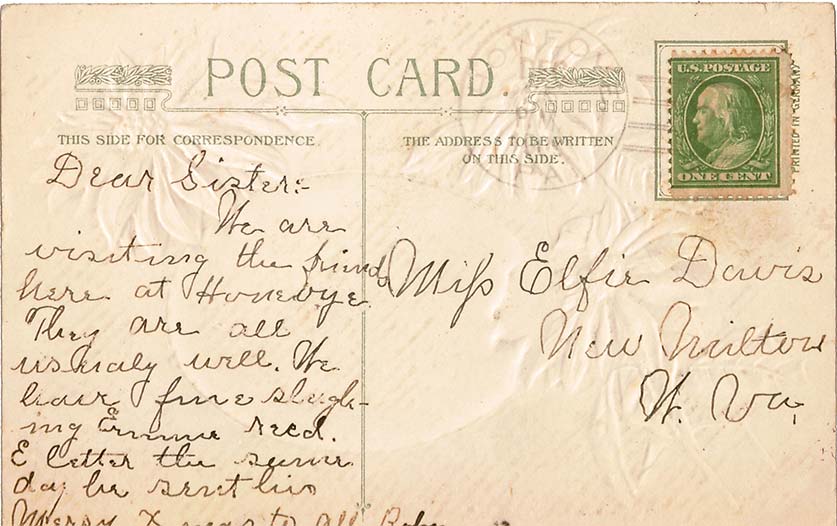 POST CARD.
THIS SIDE FOR CORRESPONDENCE.
THE ADDRESS TO BE WRITTEN
ON THIS SIDE.
U.S. POSTAGE
ONE CENT
PRINTED IN GERMANY
PA
Dear Sister:-
We are
visiting the friends
here at
They are all
usualy well. We
have fine sleigh-
ing recd.
E letter the same
day he sent his
Merry Xmas to all
Miss Elfie Davis
New Milton
W. Va,